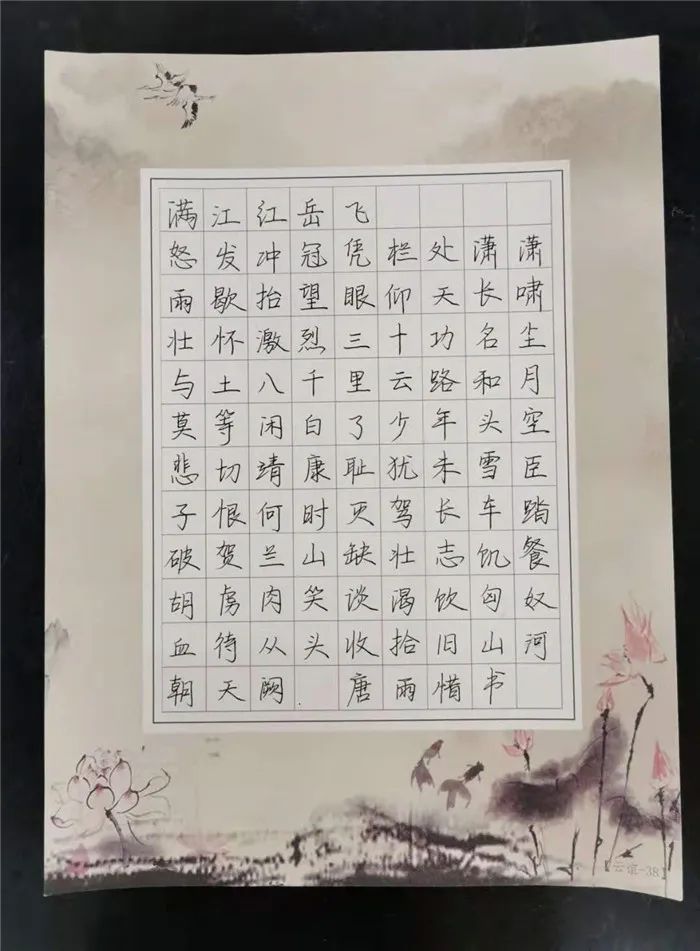 满江红岳飞
怒发冲冠凭栏处潇潇
雨歇抬望眼仰天长啸
壮怀激烈三十功名尘
与土八千里云路和月
莫等闲白了少年头空
悲切靖康耻犹未雪臣
子恨何时灭驾长车踏
破贺兰山缺壮志饥餐
胡虏肉笑谈渴饮匈奴
血待从头收拾旧山河
朝天阙 唐雨惜书
【云谊-38】